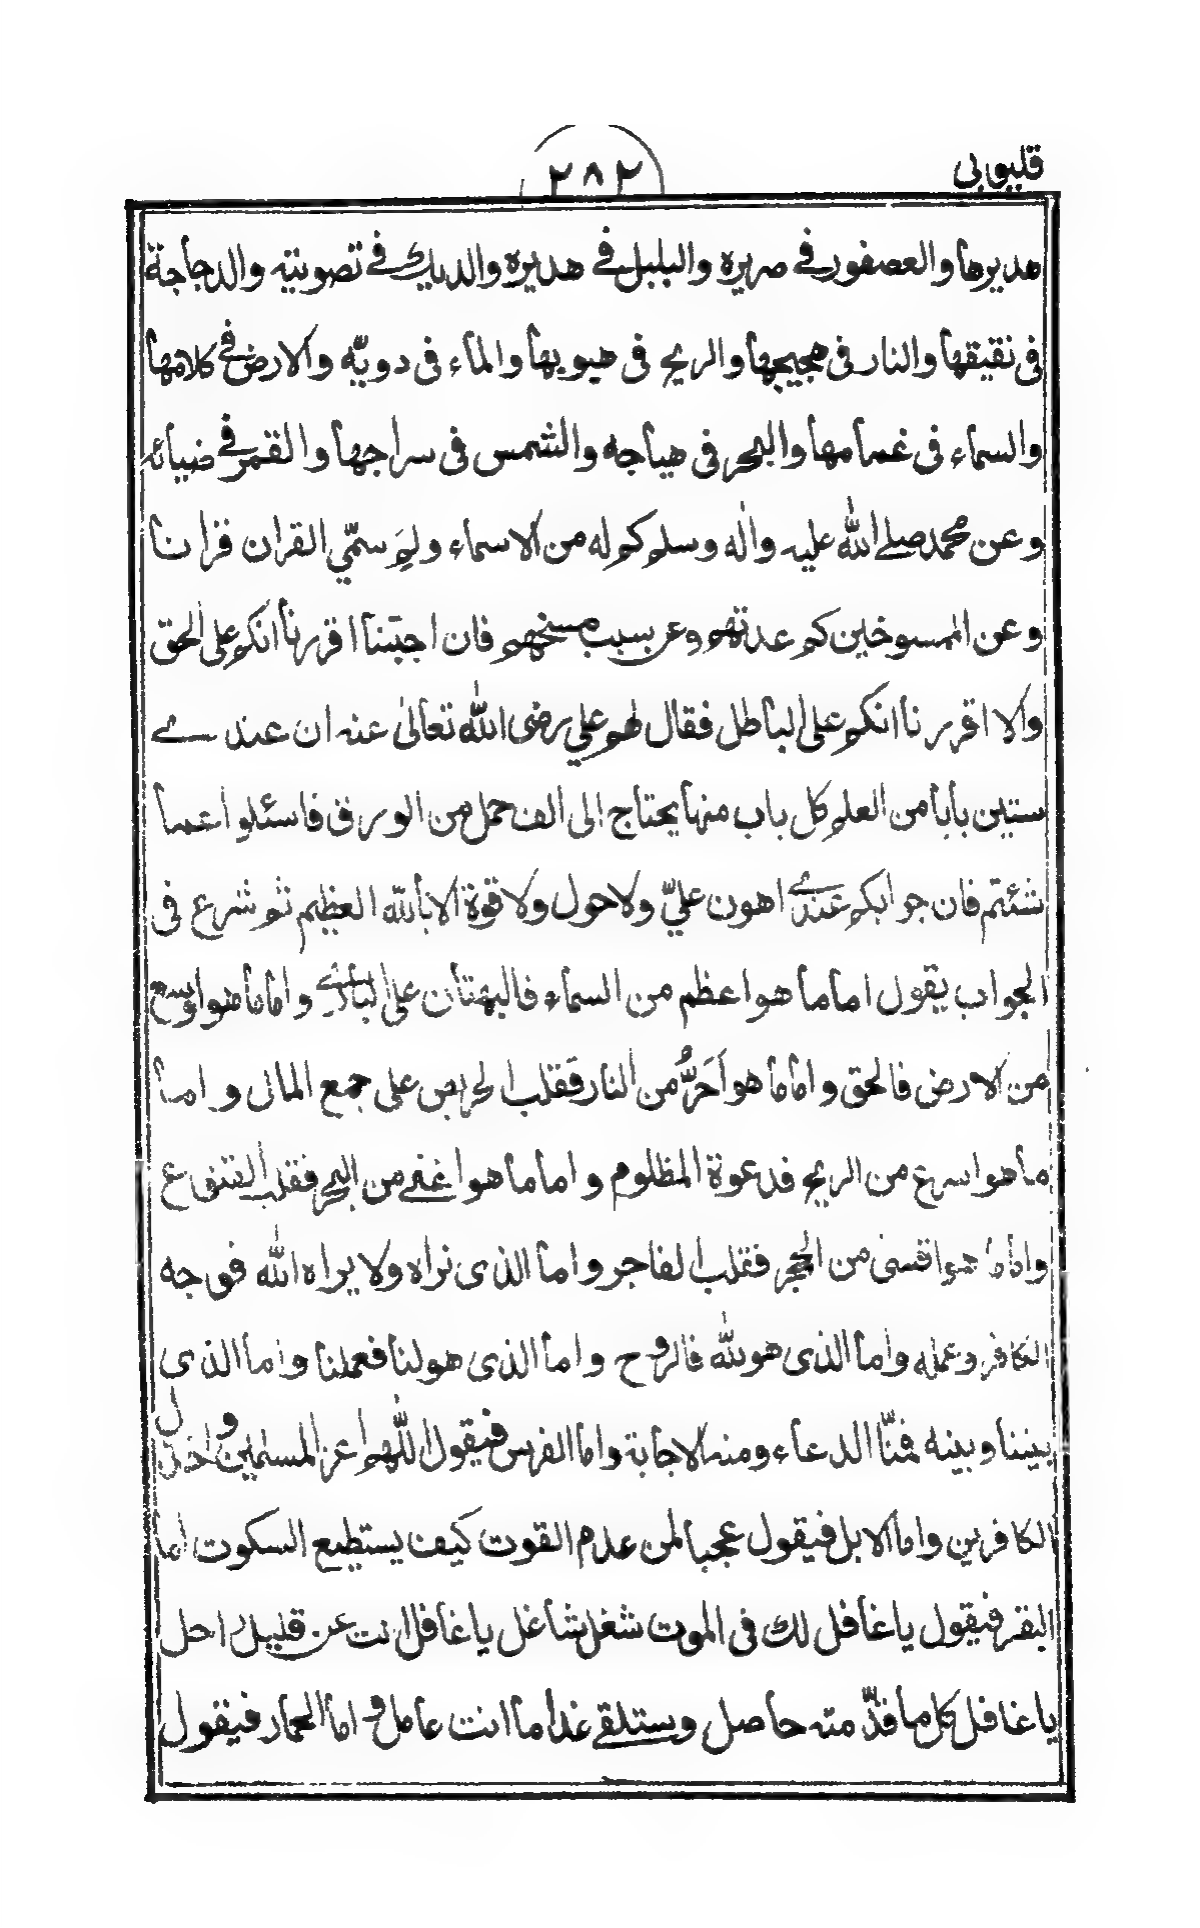 قليوبى
٢٨٢
هديرها والعصفور في صريره والبلبل في هديره والديك في تصويته والدجاجة
فى نقيقها والنار فى هجيجها والريح فى هبوبها والماء فى دويّه والارض في كلامها
والسماء فى غمامها والبحر فى هياجه والشمس فى سراجها والقمر في ضيائه
وعن محمد صلے الله عليه واٰله وسلم كم له من الاسماء ولِمَ سمّي القراٰن قراٰنا
وعن الممسوخين كم عدتهم وعن سبب مسخهم فان اجبتنا اقررنا انكم على الحق
والا اقررنا انكم على الباطل فقال لهم علي رضى الله تعالىٰ عنه ان عندے
ستين بابا من العلم كل باب منها يحتاج الى الف حمل من الورق فاسئلوا عما
شئتم فان جوابكم عندے اهون عليّ ولا حول ولا قوة الا بالله العظيم ثم شرع فى
الجواب يقول اما ما هو اعظم من السماء فالبهتان على البارے واما ما هو اوسع
من الارض فالحق واما ما هو اَحَرُّ من النار فقلب الحريص على جمع المال واما
ما هو اسرع من الريح فدعوة المظلوم واما ما هو اغنے من البحر فقلب القنوع
واما ما هو اقسى من الحجر فقلب الفاجر واما الذى نراه ولا يراه الله فوجه
الكافر وعمله واما الذى هو لله فالروح واما الذى هو لنا فعملنا واما الذى
بيننا وبينه فمنّا الدعاء ومنه الاجابة واما الفرس فيقول اللّٰهم اعز المسلمين واخذل
الكافرين واما الابل فيقول عجبا لمن عدم القوت كيف يستطيع السكوت اما
البقر فيقول يا غافل لك فى الموت شغل شاغل يا غافل انت عن قليل راحل
يا غافل كل ما قدّمته حاصل وستلقے غدا ما انت عامل و اما الحمار فيقول